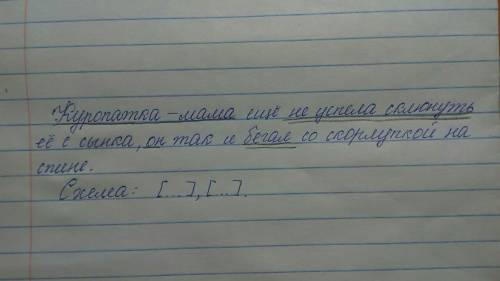 Куропатка-мама ещё не успела склюнуть
её с сынка, он так и бегал со скорлупкой на
спине.
Схема: [...], [...].